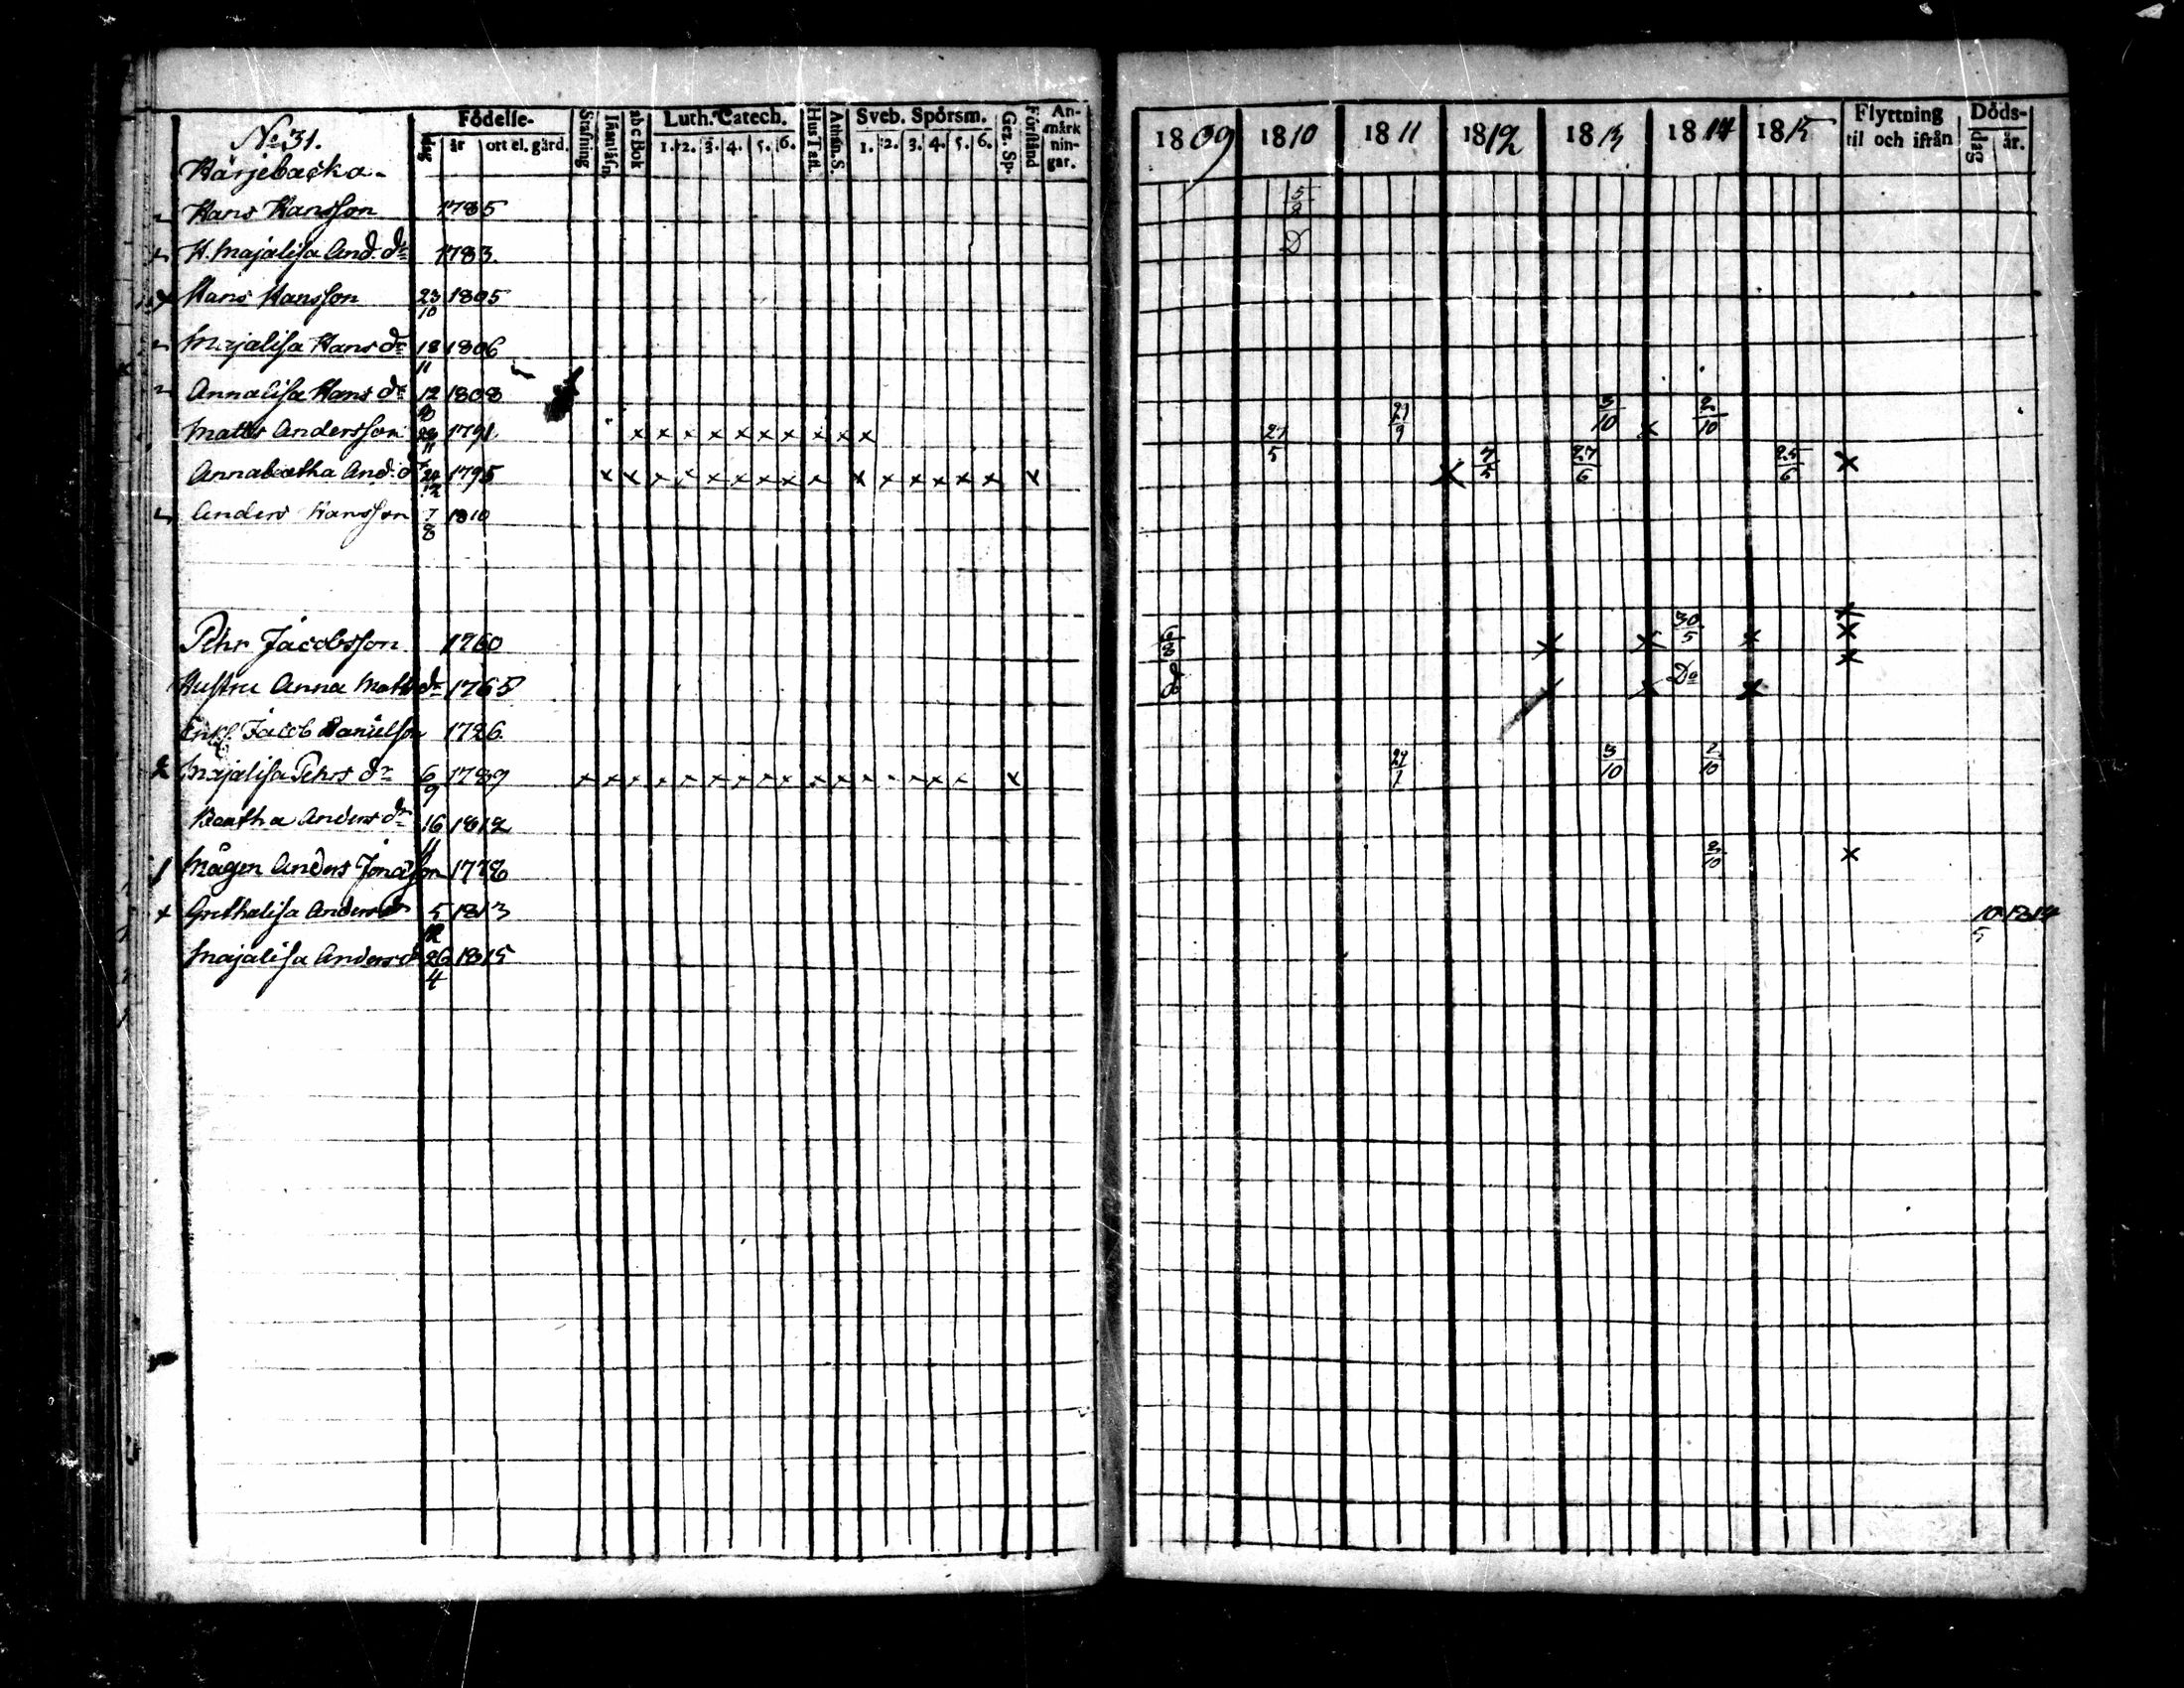 No 31.
Härjebacka.
Födelse-
dag
år
ort el. gård.
Stafning
Innanläsn.
abc Bok
Luth. Catech.
1. 2. 3. 4. 5. 6.
Hus Tafl.
Athan. S.
Sveb. Spörsm.
1. 2. 3. 4. 5. 6.
Gez. Sp.
Förstånd
An-
märk
nin-
gar.
1809 1810 1811 1812 1813 1814 1815
Flyttning
til och ifrån
Döds-
dag
år.
Hans Hansson 1785 5/8
H. Majalisa And. dr 1783 D
Hans Hansson 23/10 1805
Majalisa Hans dr 18/11 1806
Annalisa Hans dr 12 1808
Matts Andersson 1791 x x x x x x x x x x 27/5 3/10 x 2/10
Annabeatha And. dr 24/12 1795 x x x x x x x x x x x x x x x x x 7/5 27/6 25/6 x
Anders Hansson 7/8 1810
Pehr Jacobsson 1760 x x 30/5 x x
Hustru Anna Matts dr 1765 x x Do x
Jacob Danielson 1726
Majalisa Pehrs dr 6/9 1789 x x x x x x x x x x x x x x x x x 3/10 2/10
Beatha Anders dr 16/11 1812
Mågen Anders Jonasson 1778 2/10 x
x Grethalisa Anders dr 5/12 1813 10/5 1814
Majalisa Anders dr 26/4 1815